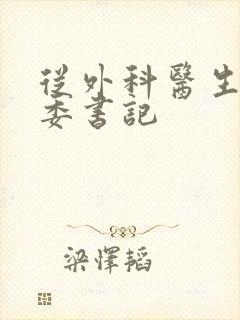 從外科醫生
委書記
梁懌韜